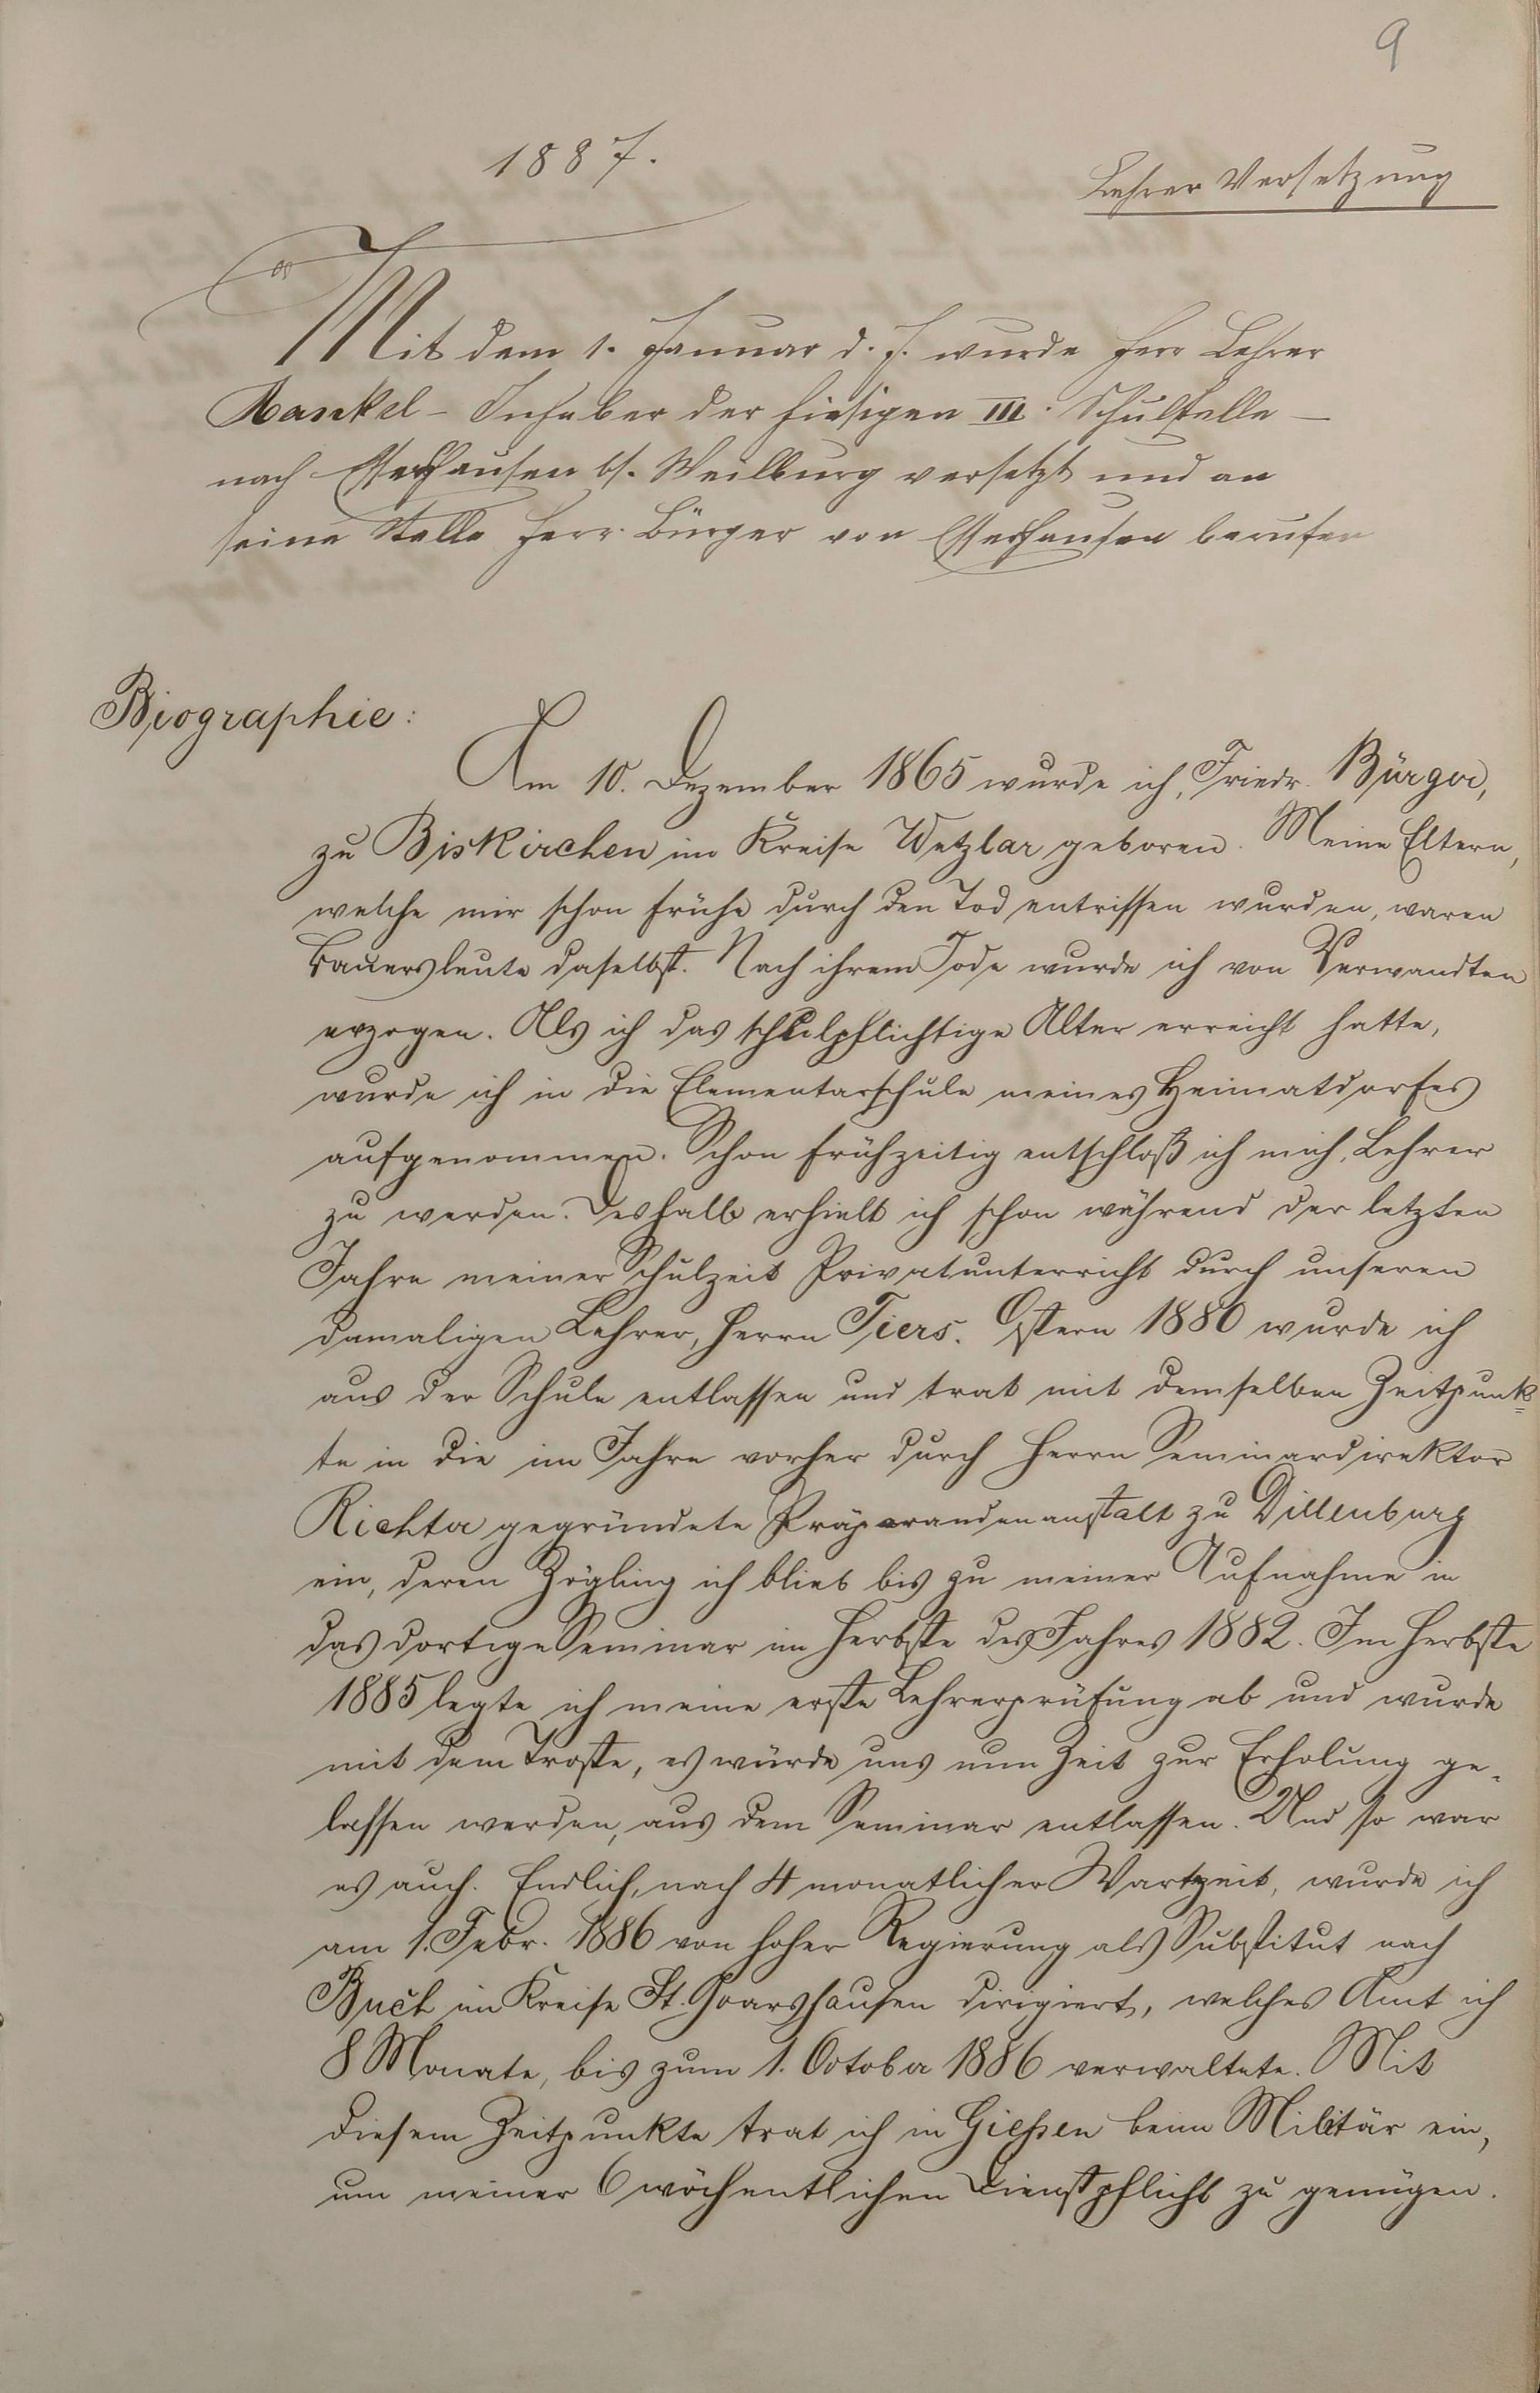 9
1887.
Lehrer Versetzung
Mit dem 1. Januar d. J. wurde Herr Lehrer
Rankel - Inhaber der hiesigen III. Schulstelle -
nach Essershausen bs. Weilburg versetzt und an
seine Stelle Herr Bürger von Essershausen berufen
Biographie:
Am 10. Dezember 1865 wurde ich, Friedr. Bürger,
zu Biskirchen im Kreise Wetzlar geboren. Meine Eltern,
welche mir schon frühe durch den Tod entrissen wurden, waren
Bauersleute daselbst. Nach ihrem Tode wurde ich von Verwandten
erzogen. Als ich das schulpflichtige Alter erreicht hatte,
wurde ich in die Elementarschule meines Heimatdorfes
aufgenommen. Schon frühzeitig entschloß ich mich, Lehrer
zu werden. Deshalb erhielt ich schon während der letzten
Jahre meiner Schulzeit Privatunterricht durch unseren
damaligen Lehrer, Herrn Tiers. Ostern 1880 wurde ich
aus der Schule entlassen und trat mit demselben Zeitpunk=
te in die im Jahre vorher durch Herrn Seminardirektor
Richter gegründete Präparandenanstalt zu Dillenburg
ein, deren Zögling ich blieb bis zu meiner Aufnahme in
das dortige Seminar im Herbste des Jahres 1882. Im Herbste
1885 legte ich meine erste Lehrerprüfung ab und wurde
mit dem Troste, es würde uns nun Zeit zur Erholung ge-
lassen werden, aus dem Seminar entlassen. Und so war
es auch. Endlich, nach 4 monatlicher Wartezeit, wurde ich
am 1. Febr. 1886 von hoher Regierung als Substitut nach
Buch im Kreise St. Goarshausen dirigiert, welches Amt ich
8 Monate, bis zum 1. October 1886 verwaltete. Mit
diesem Zeitpunkte trat ich in Gießen beim Militär ein,
um meiner 6 wöchentlichen Dienstpflicht zu genügen.